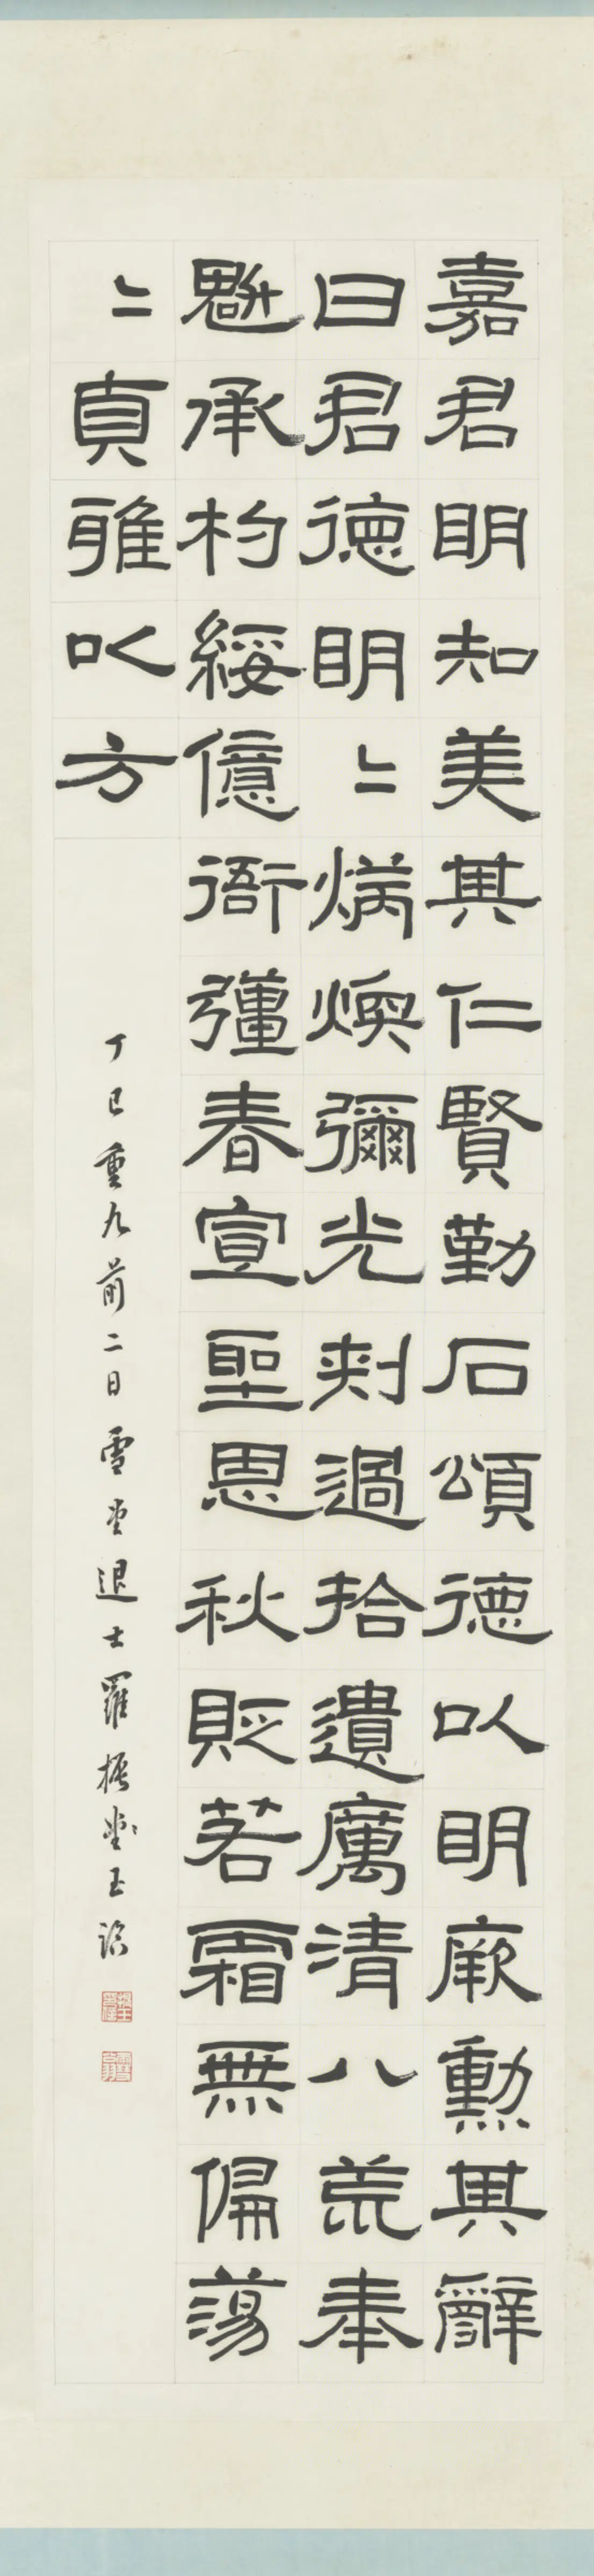 嘉君明知美其仁賢勤石頌德以明厥勳其辭
曰君德明〻煥煥彌光刺過拾遺厲清八荒奉
魁承杓綏億衙彊春宣聖恩秋貶若霜無偏蕩
〻貞雅以方
丁巳重九前二日雪堂退士羅振玉臨